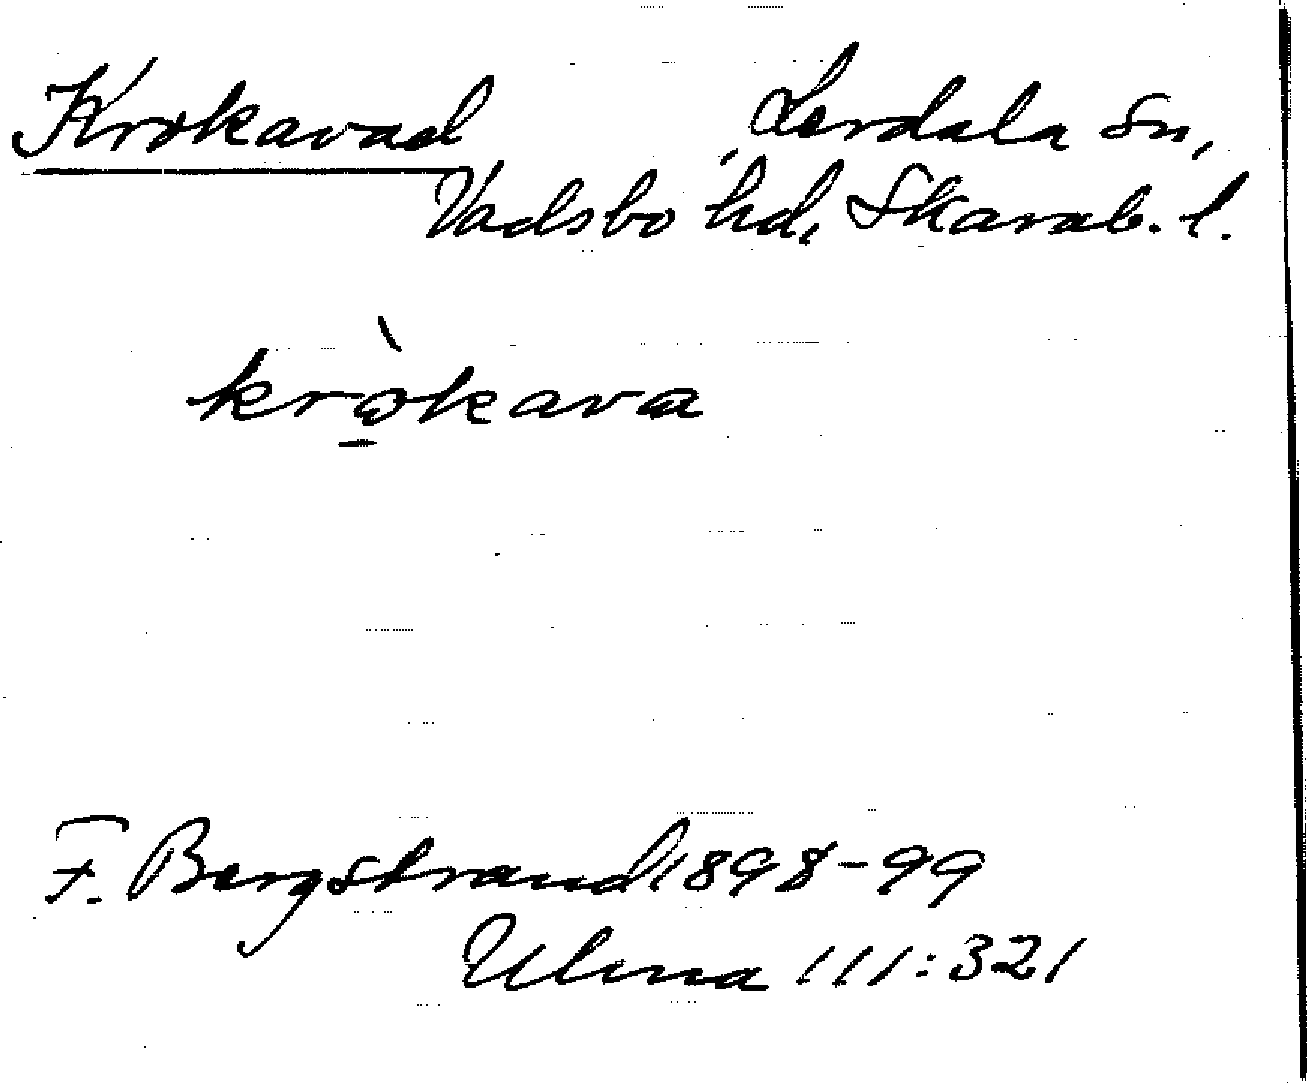 Krokavad Lerdala sn,
Vadsbo hd, Skarab. l.
krò̲kava
F. Bergstrand 1898-99
Ulma 111:321